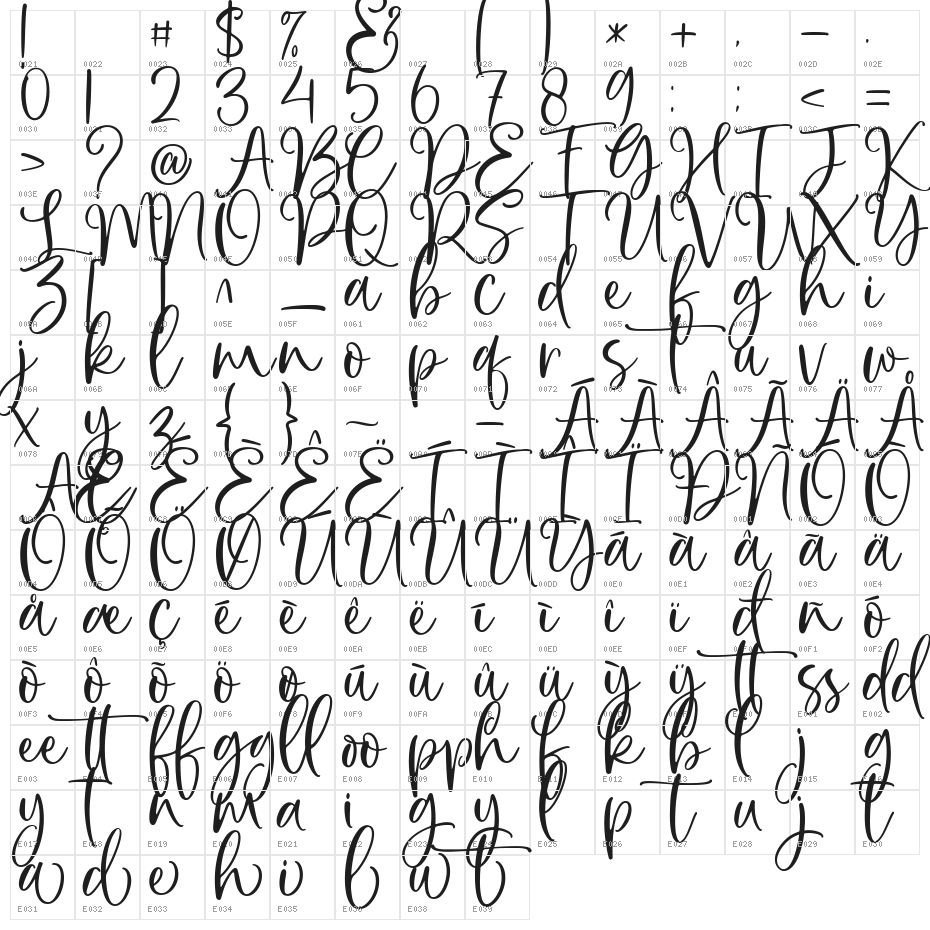 ! # $ % & ( ) * + , - .
0021 0022 0023 0024 0025 0026 0027 0028 0029 002A 002B 002C 002D 002E
0 1 2 3 4 5 6 7 8 9 : ; < =
0030 0031 0032 0033 0034 0035 0036 0037 0038 0039 003A 003B 003C 003D
> ? @ A B C D E F G H I J K
003E 003F 0040 0041 0042 0043 0044 0045 0046 0047 0048 0049 004A 004B
L M N O P Q R S T U V W X Y
004C 004D 004E 004F 0050 0051 0052 0053 0054 0055 0056 0057 0058 0059
Z [ ] ^ _ a b c d e f g h i
005A 005B 005D 005E 005F 0061 0062 0063 0064 0065 0066 0067 0068 0069
j k l m n o p q r s t u v w
006A 006B 006C 006D 006E 006F 0070 0071 0072 0073 0074 0075 0076 0077
x y z { } ~ - À Á Â Ã Ä Å
0078 0079 007A 007B 007D 007E 00A0 00AD 00C0 00C1 00C2 00C3 00C4 00C5
Æ Ç È É Ê Ë Ì Í Î Ï Ð Ñ Ò Ó
00C6 00C7 00C8 00C9 00CA 00CB 00CC 00CD 00CE 00CF 00D0 00D1 00D2 00D3
Ô Õ Ö Ø Ù Ú Û Ü Ý à á â ã ä
00D4 00D5 00D6 00D8 00D9 00DA 00DB 00DC 00DD 00E0 00E1 00E2 00E3 00E4
å æ ç è é ê ë ì í î ï ð ñ ò
00E5 00E6 00E7 00E8 00E9 00EA 00EB 00EC 00ED 00EE 00EF 00F0 00F1 00F2
ó ô õ ö ø ù ú û ü ý ÿ tt ss dd
00F3 00F4 00F5 00F6 00F8 00F9 00FA 00FB 00FC 00FD 00FF E001 E002
ee tt ff gg ll oo pp h f k b l j g
E003 E004 E005 E006 E007 E008 E009 E010 E011 E012 E013 E014 E015 E016
y t n m a i g y f p t u j t
E017 E018 E019 E020 E021 E022 E023 E024 E025 E026 E027 E028 E029 E030
a d e h i l w t
E031 E032 E033 E034 E035 E036 E038 E039